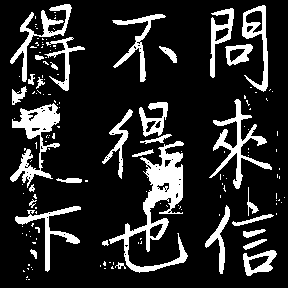 問來信
不得也
得足下